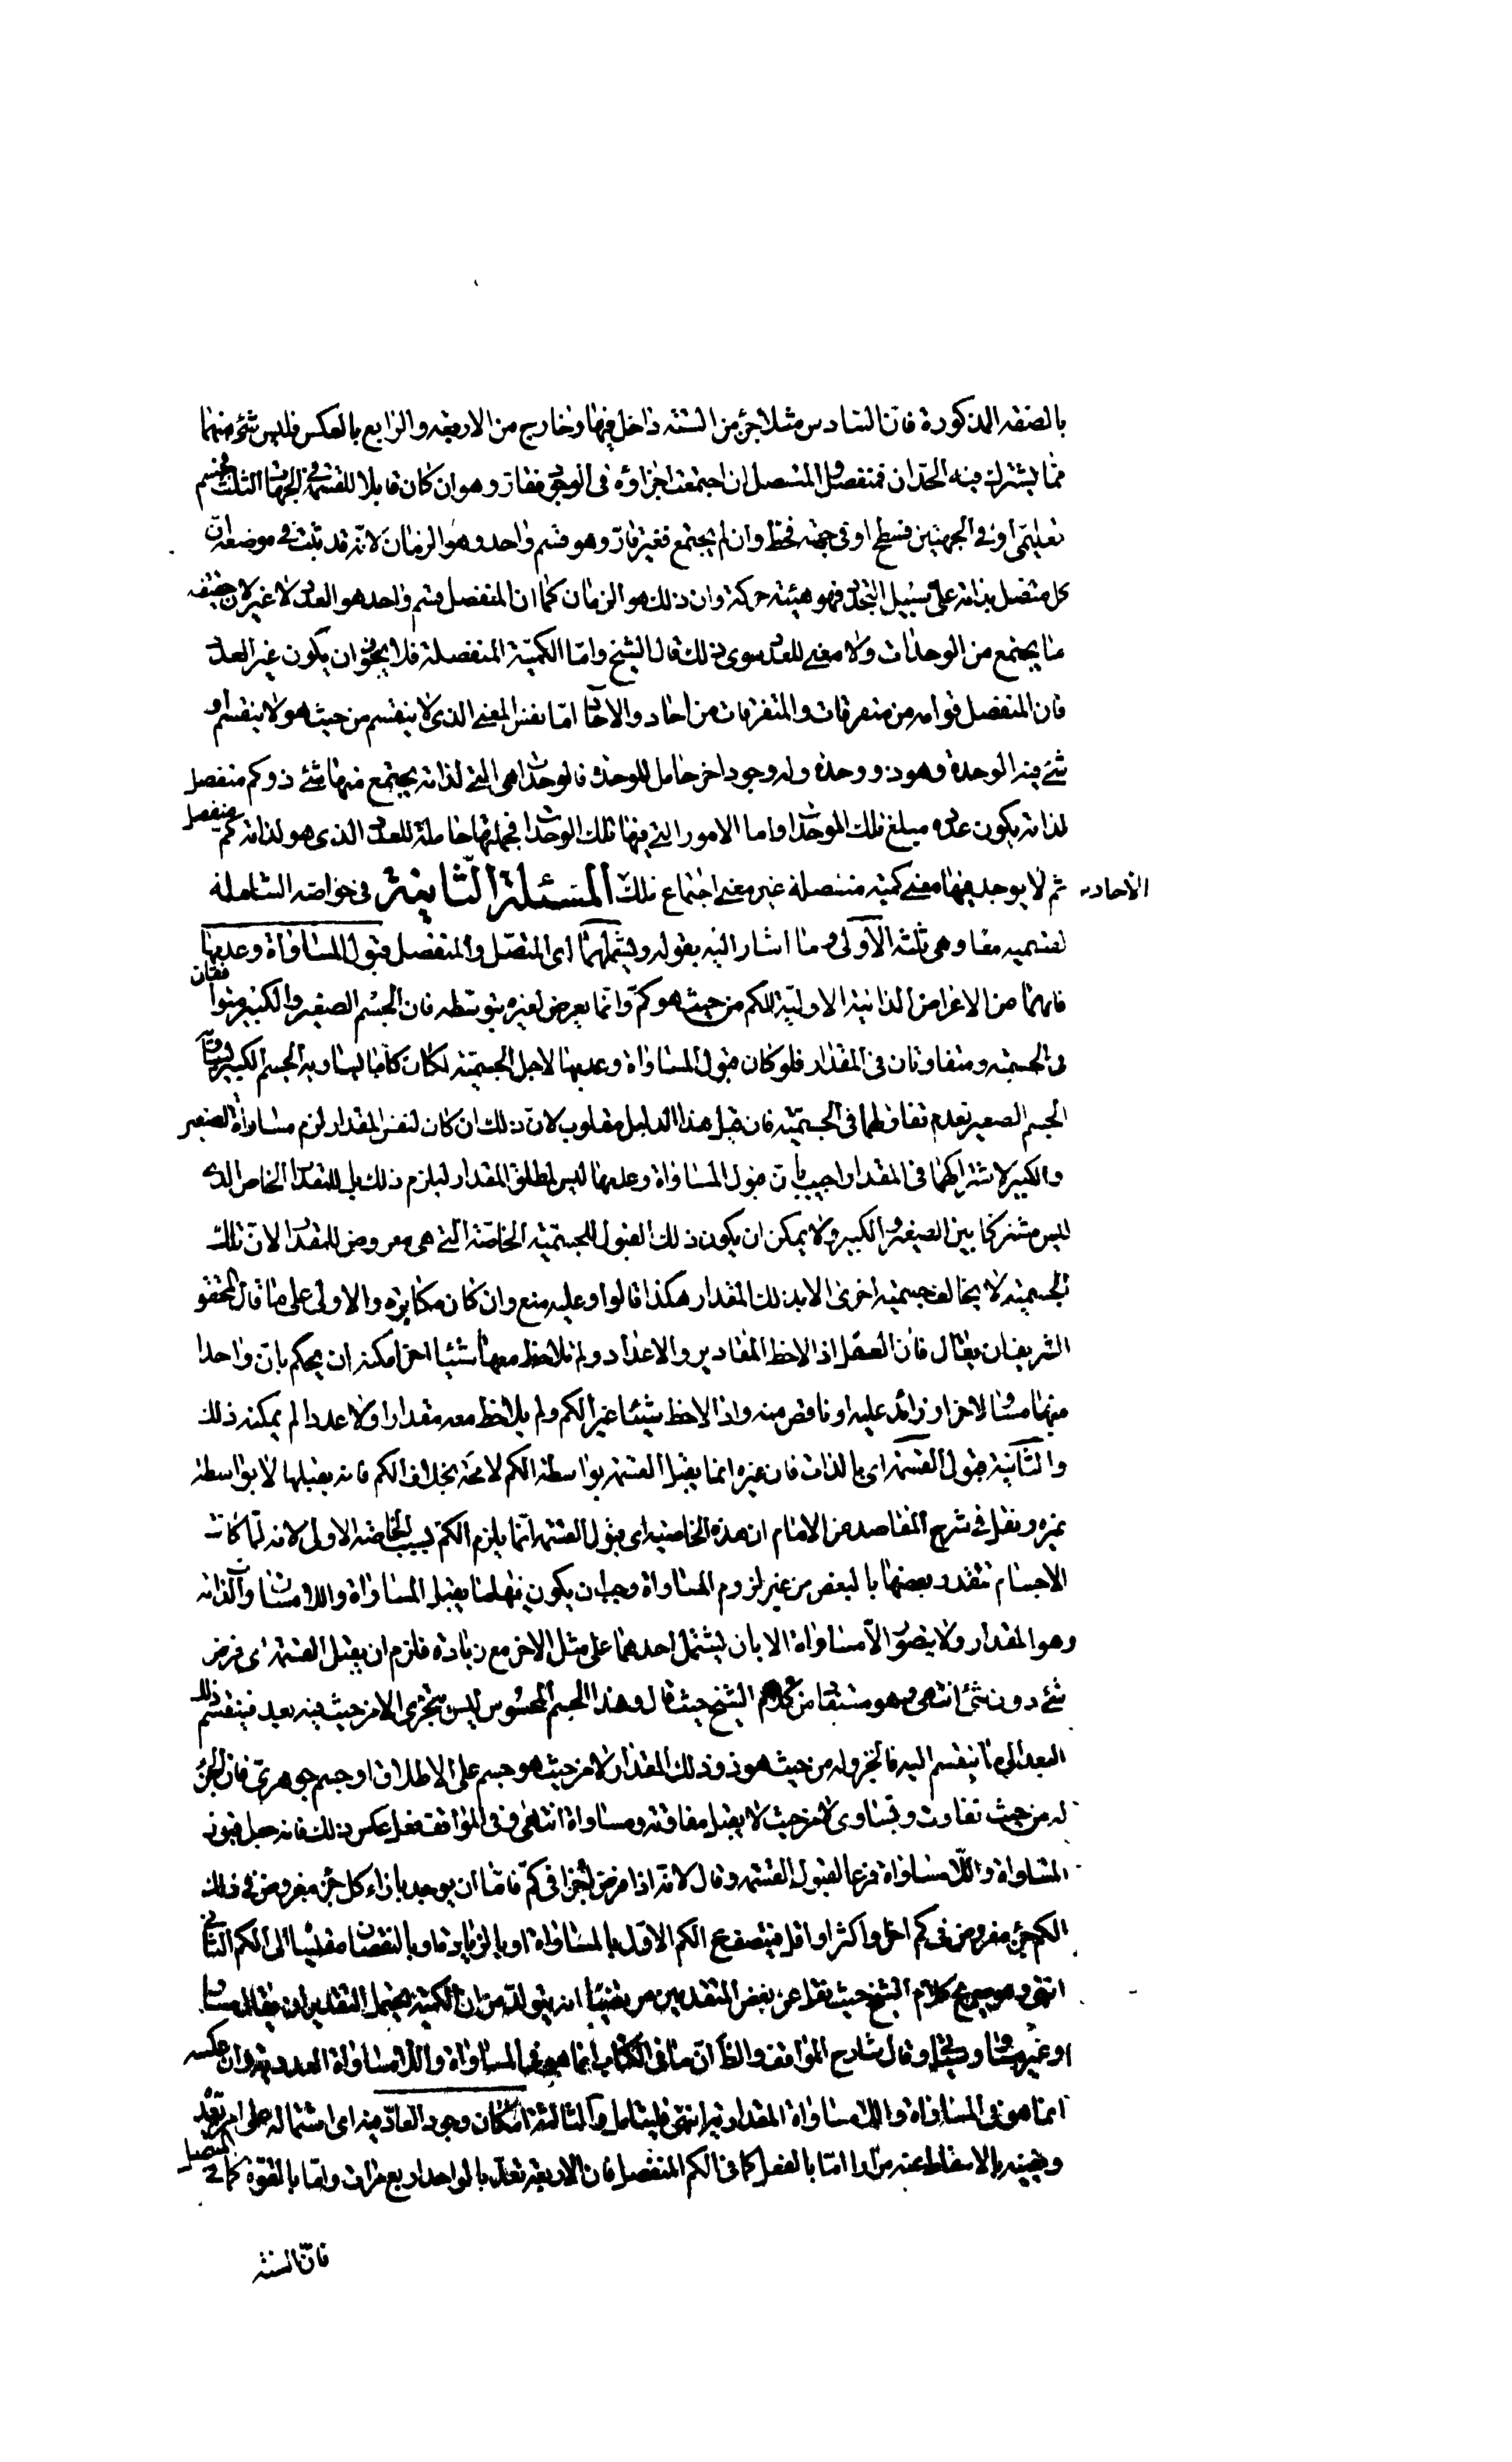 بالصفة المذكورة فان السادس مثلا جزء من الستة داخل فيها وخارج من الاربعة والرابع بالعكس فليس شئ منهما
مما يشترك فيه الحدان فمنفصل والمتصل ان اجتمعت اجزاؤه فى الوجود فقار وهو ان كان قابلا للقسمة فى الجهات الثلث فجسم
تعليمى او فى الجهتين فسطح او فى جهة فخط وان لم يجتمع فغير قار وهو قسم واحد وهو الزمان لانه قد ثبت فى موضعه ان
كل متصل بذاته على سبيل التجدد فهو هيئة حركة وان ذلك هو الزمان كما ان المنفصل قسم واحد هو العدد لا غير لان حقيقته
ما يجتمع من الوحدات ولا معنى للعدد سوى ذلك قال الشيخ واما الكمية المنفصلة فلا يجوز ان يكون غير العدد
فان المنفصل قوامه من متفرقات والمتفرقات من احاد والاحاد اما نفس المعنى الذى لا ينقسم من حيث هو لا ينقسم او
شئ فيه الوحدة وهو ذو وحدة وله وجود اخر حامل للوحدة فالوحدات هى التى لذاته يجتمع منها شئ ذو كم منفصل
لذاته يكون عدده مبلغ تلك الوحدات واما الامور التى فيها تلك الوحدات فجملتها حاملة للعدد الذى هو لذاته كم منفصل
ثم لا يوجد فيها معنى كمية منفصلة غير معنى اجتماع تلك الاحاد المسئلة الثانية فى خواصه الشاملة
لقسميه معا وهى ثلثة الاولى ما اشار اليه بقوله ويشملهما اى المتصل والمنفصل قبول المساواة وعدمها
فانهما من الاعراض الذاتية الاولية للكم من حيث هو كم وانما يعرض لغيره بتوسطه فان الجسم الصغير والكبير متوافقان
فى الجسمية ومتفاوتان فى المقدار فلو كان قبول المساواة وعدمها لاجل الجسمية لكان كلما يساويه الجسم الكبير يساويه
الجسم الصغير لعدم تفاوتهما فى الجسمية فان قيل هذا الدليل مقلوب لان ذلك ان كان لنفس المقدار لزم مساواة الصغير
والكبير لاشتراكهما فى المقدار اجيب بان قبول المساواة وعدمها ليس لمطلق المقدار ليلزم ذلك بل للمقدار الخاص الذى
ليس مشتركا بين الصغير والكبير ولا يمكن ان يكون ذلك القبول للجسمية الخاصة التى هى معروض للمقدار لان تلك
الجسمية لا يخالف جسمية اخرى الا بذلك المقدار هكذا قالوا وعليه منع وان كان مكابرة والاولى على ما قال المحقق
الشريف ان يقال فان العقل اذا لاحظ المقادير والاعداد ولم يلاحظ معها شيئا اخر امكنه ان يحكم بان واحدا
منهما مساو لاخر او زائد عليه او ناقص منه واذا لاحظ شيئا غير الكم ولم يلاحظ معه مقدارا ولا عددا لم يمكنه ذلك
والثانية قبول القسمة اى بالذات فان غيره انما يقبل القسمة بواسطة الكم لا محة بخلاف الكم فانه يقبلها لا بواسطة
غيره ونقل فى شرح المقاصد عن الامام ان هذه الخاصية اى قبول القسمة انما يلزم الكم بسبب الخاصة الاولى لانه لما كانت
الاجسام تتقدر بعضها بالبعض من غير لزوم المساواة وجب ان يكون فيها ما يقبل المساواة واللامساواة لذاته
وهو المقدار ولا يتصور اللامساواة الا بان يشتمل احدهما على مثل الاخر مع زيادة فلزم ان يقبل القسمة اى فرض
شئ دون شئ انتهى وهو مستفاد من كلام الشيخ حيث قال وهذا الجسم المحسوس ليس يتجزى الا من حيث فيه بعد فينقسم ذلك
البعد الى ما ينقسم اليه فالجزء له من حيث هو ذو ذلك المقدار لا من حيث هو جسم على الاطلاق او جسم جوهرى فان الجزء
له من حيث تفاوت وتساوى لا من حيث لا يقبل مفاوتة ومساواة انتهى وفى المواقف فعل عكس ذلك فانه جعل قبول
المساواة واللامساواة فرعا لقبول القسمة وقال لانه اذا فرض اجزاء فى كم فاما ان يوجد بازاء كل جزء مفروض فى ذلك
الكم جزء مفروض فى كم اخر او اكثر او اقل فيتصف الكم الاول بالمساواة او بالزيادة او بالنقصان مقيسا الى الكم الثانى
انتهى وهو صريح كلام الشيخ حيث نقل عن بعض المتقدمين مرتضيا انه يتولد من ان الكمية يحتمل التقدير ان يقال مساو
او غير مساو وقال شارح المواقف والظ ان ما فى الكتاب انما هو فى المساواة واللامساواة العددية وان عكسه
انما هو فى المساواة واللامساواة المقدارية انتهى فليتامل والثالثة امكان وجود العاد فيه اى اشتماله على امر يعده
ويفنيه بالاسقاط عنه مرارا اما بالفعل كما فى الكم المنفصل فان الاربعة تعد بالواحد اربع مرات واما بالقوة كما فى المتصل
فان السنة